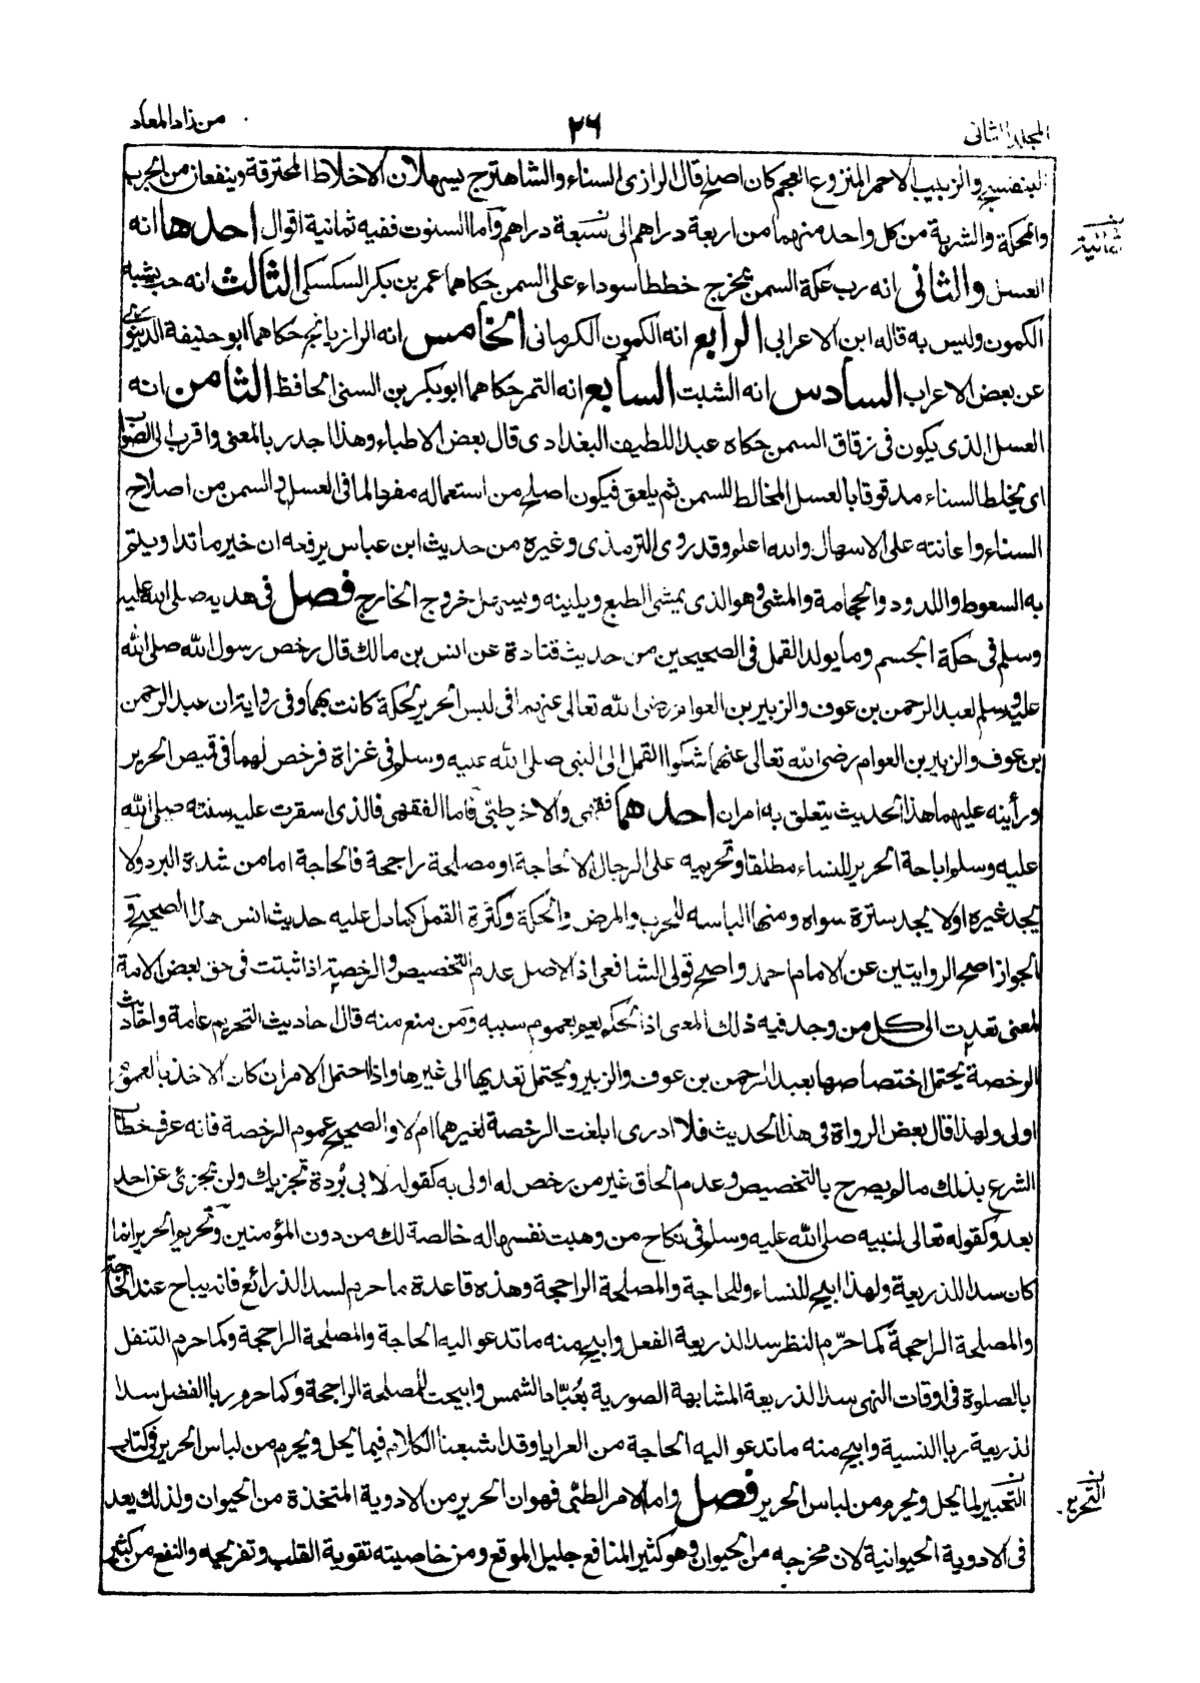 المجلد الثانى
٢٦
من زاد المعاد
البنفسج والزبيب الاحمر المنزوع العجم كان اصلح قال الرازى السناء والشاهترج يسهلان الاخلاط المحترقة وينفعان من الجرب
والحكة والشربة من كل واحد منهما من اربعة دراهم الى سبعة دراهم واما السنوت ففيه ثمانية اقوال احدها انه
العسل والثانى انه رب عكة السمن يخرج خططا سوداء على السمن حكاهما عمر بن بكر السكسكى الثالث انه حب يشبه
الكمون وليس به قاله ابن الاعرابى الرابع انه الكمون الكرمانى الخامس انه الرازيانج حكاهما ابو حنيفة الدينورى
عن بعض الاعراب السادس انه الشبت السابع انه التمر حكاهما ابو بكر بن السنى الحافظ الثامن انه
العسل الذى يكون فى زقاق السمن حكاه عبد اللطيف البغدادى قال بعض الاطباء وهذا اجدر بالمعنى واقرب الى الصواب
اى يخلط السناء مدقوقا بالعسل المخالط للسمن ثم يلعق فيكون اصلح من استعماله مفردا لما فى العسل والسمن من اصلاح
السناء واعانته على الاسهال والله اعلم وقد روى الترمذى وغيره من حديث ابن عباس يرفعه ان خير ما تداويتم
به السعوط واللدود والحجامة والمشى وهو الذى يمشى الطبع ويلينه ويسهل خروج الخارج فصل فى هديه صلى الله عليه
وسلم فى حكة الجسم وما يولد القمل فى الصحيحين من حديث قتادة عن انس بن مالك قال رخص رسول الله صلى الله
عليه وسلم لعبد الرحمن بن عوف والزبير بن العوام رضى الله تعالى عنهما فى لبس الحرير لحكة كانت بهما وفى رواية ان عبد الرحمن
بن عوف والزبير بن العوام رضى الله تعالى عنهما شكوا القمل الى النبى صلى الله عليه وسلم فى غزاة فرخص لهما فى قميص الحرير
ورأيته عليهما هذا الحديث يتعلق به امران احدهما فقهى والاخر طبى فاما الفقهى فالذى استقرت عليه سنته صلى الله
عليه وسلم اباحة الحرير للنساء مطلقا وتحريمه على الرجال الا لحاجة او مصلحة راجحة فالحاجة اما من شدة البرد ولا
يجد غيره او لا يجد سترة سواه ومنها الباسه للجرب والمرض والحكة وكثرة القمل كما دل عليه حديث انس هذا الصحيح و
الجواز اصح الروايتين عن الامام احمد واصح قولى الشافعى اذ الاصل عدم التخصيص والرخصة اذا ثبتت فى حق بعض الامة
لمعنى تعدت الى كل من وجد فيه ذلك المعنى اذ الحكم يعم بعموم سببه ومن منع منه قال احاديث التحريم عامة واحاديث
الرخصة يحتمل اختصاصها بعبد الرحمن بن عوف والزبير ويحتمل تعديها الى غيرها واذا احتمل الامران كان الاخذ بالعموم
اولى ولهذا قال بعض الرواة فى هذا الحديث فلا ادرى ابلغت الرخصة لغيرهما ام لا والصحيح عموم الرخصة فانه عرف خطاب
الشرع بذلك ما لم يصرح بالتخصيص وعدم الحاق غير من رخص له اولى به كقوله لابى بُردة تجزيك ولن تجزئ عن احد
بعدك وكقوله تعالى لنبيه صلى الله عليه وسلم فى نكاح من وهبت نفسها له خالصة لك من دون المؤمنين وتحريم الحرير انما
كان سدا للذريعة ولهذا ابيح للنساء وللحاجة والمصلحة الراجحة وهذه قاعدة ما حرم لسد الذرائع فانه يباح عند الحاجة
والمصلحة الراجحة كما حرّم النظر سدا لذريعة الفعل وابيح منه ما تدعو اليه الحاجة والمصلحة الراجحة وكما حرم التنفل
بالصلوة فى اوقات النهى سدا لذريعة المشابهة الصورية بعُبّاد الشمس وابيحت للمصلحة الراجحة وكما حرم ربا الفضل سدا
لذريعة ربا النسية وابيح منه ما تدعو اليه الحاجة من العرايا وقد اشبعنا الكلام فيما يحل ويحرم من لباس الحرير فى كتاب
التحبير لما يحل ويحرم من لباس الحرير فصل واما الامر الطبى فهو ان الحرير من الادوية المتخذة من الحيوان ولذلك يعد
فى الادوية الحيوانية لان مخرجه من الحيوان وهو كثير المنافع جليل الموقع ومن خاصيته تقوية القلب وتفريحه والنفع من كثير